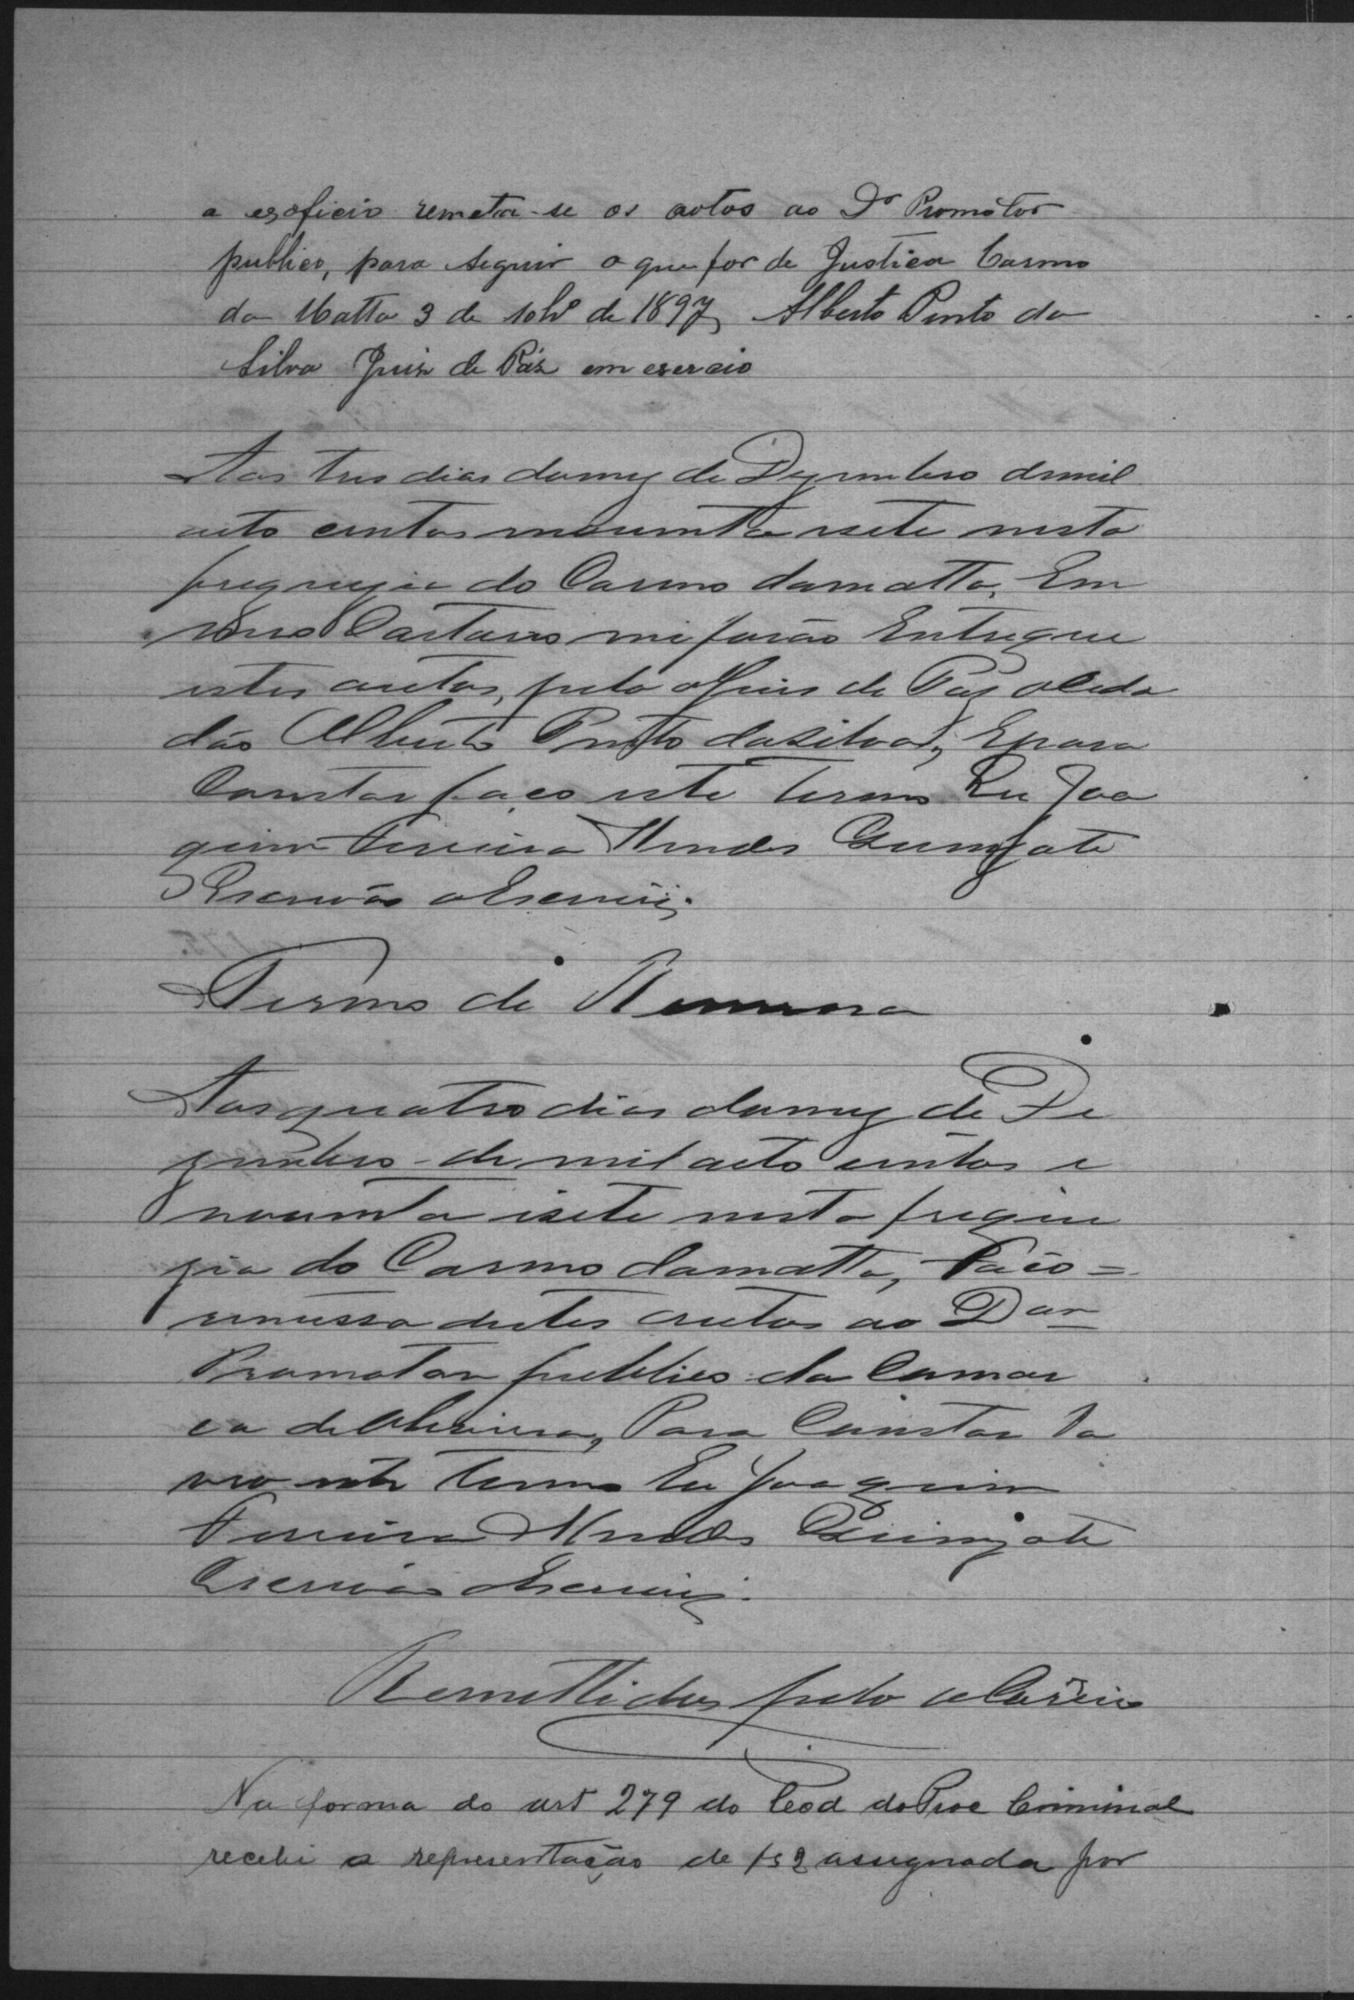 a exoficio remeta-se os autos ao Dr Promôtor
publico, para seguir o que for de Justica Carmo
da Matta 3 de 10bro de 1897, Alberto Pinto da
Silva Juiz de Páz em exercio
Aos tres dias do mez de Dezembro demil
oito centos noventa isete nesta
freguezia do Carmo damatta, Em
meo Cartorio mi forão Entregue
estes autos, pelo o Juis de Paz o Cida
dão Alberto Pinto daSilva, E para
Constar faço este termo Eu Joa
quim Ferreira Mendes
Escrivão o Escrevi.
Termo de Remessa
Aos quatro dias do mez de De
zembro de mil oito centos e
noventa isete nesta fregue
zia do Carmo damatta, Faço =
remessa destes autos ao Dor
Promotor publico da Comar
ca de Oliveira, Para Constar la
vro este termo Eu Joaquim
Ferreira Mendes
Escrivão o Escrevi.
Remettidos pelo o Correio
Na forma do art 279 do Cod do Proc Criminal
recebi a representação de fs 2 assignada por